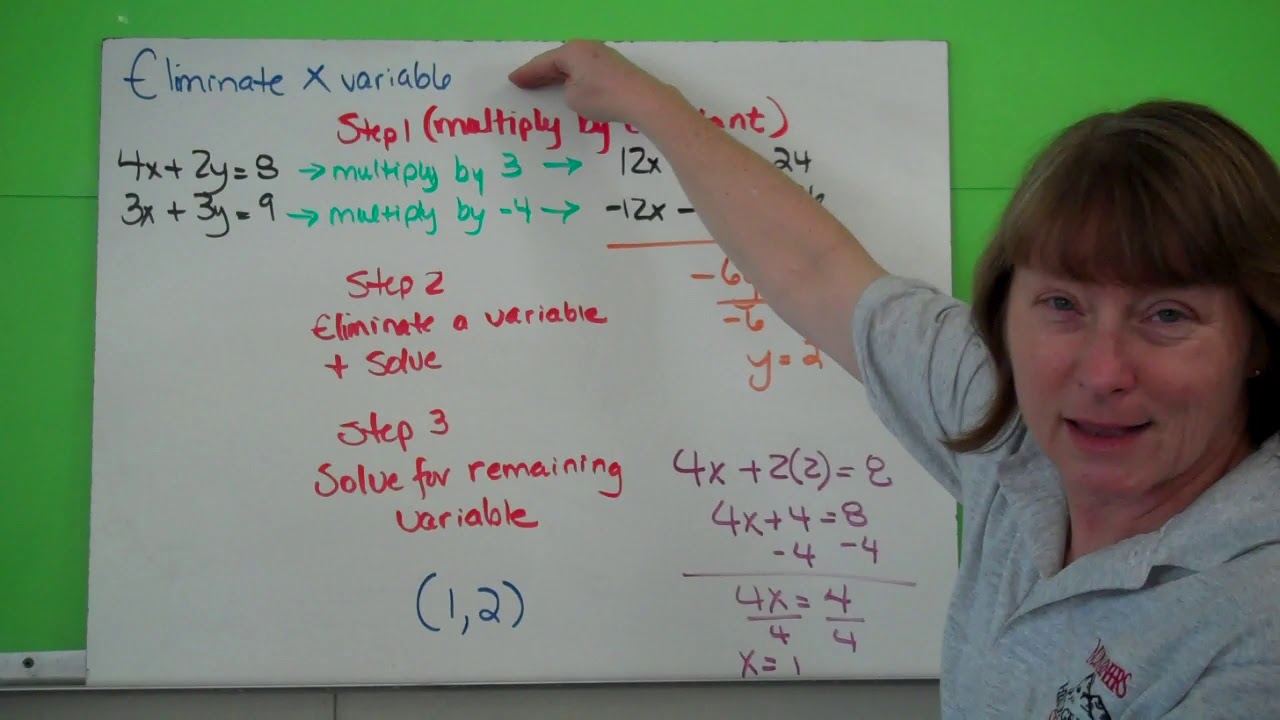 Eliminate x variable
Step 1 (multiply by
4x + 2y = 8 → multiply by 3 → 12x 24
3x + 3y = 9 → multiply by -4 → -12x -
Step 2
Eliminate a variable
+ Solve
-6
-6
y = 2
Step 3
Solve for remaining
variable
4x + 2(2) = 8
4x + 4 = 8
-4 -4
4x = 4
4 4
x = 1
(1,2)